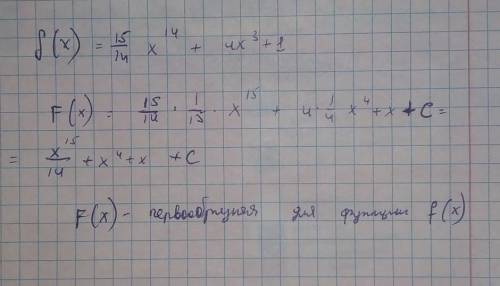 f(x) = 15/14 x^14 + 4x^3 + 1
F(x) = 15/14 · 1/15 · x^15 + 4 · 1/4 x^4 + x + C =
= x^15/14 + x^4 + x + C
F(x) - первообразная для функции f(x)